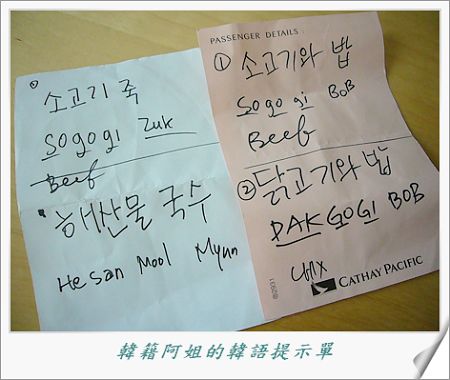 소고기 족
Sogogi Zuk
Beef
해산물 국수
He San Mool Myun
PASSENGER DETAILS
① 소고기와 밥
Sogogi BOB
Beef
② 닭고기와 밥
DAKGOGI BOB
CATHAY PACIFIC
韓籍阿姐的韓語提示單